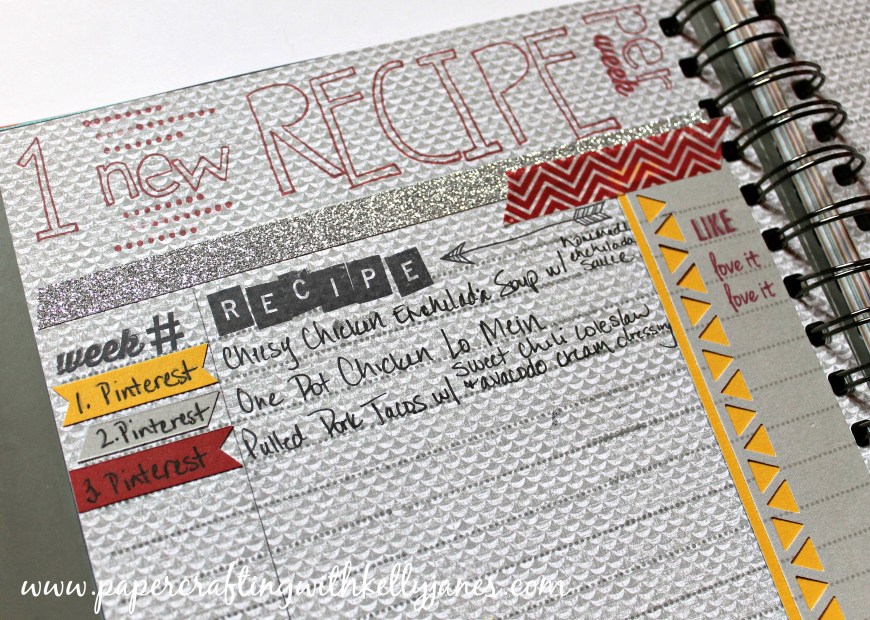 1 new RECIPE per week
RECIPE
week #
LIKE
love it
love it
1. Pinterest
Chicken Enchelada Soup w/ homemade enchelada sauce
2. Pinterest
One Pot Chicken Lo Mein
3 Pinterest
Pulled Pork Tacos w/ sweet chili coleslaw + avacado cream dressing
www.papercraftingwithkellyjanes.com